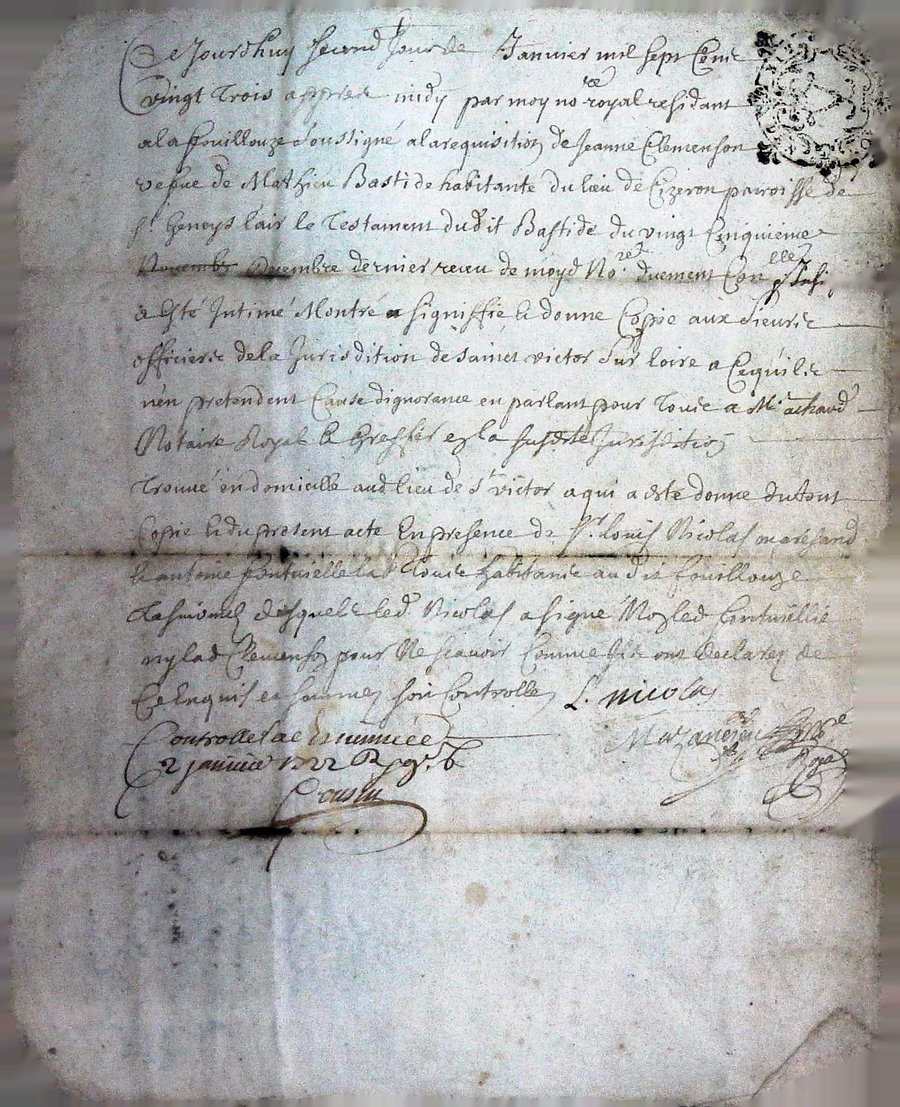 Ce Jourdhuy second Jour de Janvier mil sept Cent
vingt trois appres midy par moy no.re royal residant
a la fouillouze soussigné a la requisition de Jeanne Clemenson
vefue de Mathieu Bastide habitante du lieu de Cizeron parroisse de
St. Geneys lair le Testament dudit Bastide du vingt Cinquieme
Novembre dernier receu de moyd No.re duement Con.lle
a esté Intimé Montré signiffié & donné Copie aux sieurs
officiers de la Jurisdition de sainct victor sur loire a Cequils
nen pretendent Cause dignorance en parlant pour Tous a Me achard
Notaire Royal & Greffier en la susdte Jurisdition
Trouué en domicille aud lieu de St victor a qui a esté donné du tout
Copie & du present acte En presence de Sr. louis Nicolas marchand
& antoine fontvielle Tous habitants audit fouillouze
Tesmoins desquels led Nicolas a signé Non led fontvielle
ny lad Clemenson pour Ne scavoir Comme Ils ont declarez de
Ce Enquis et sommes soit Controllé L. Nicolas
Controllé a
2 janvier